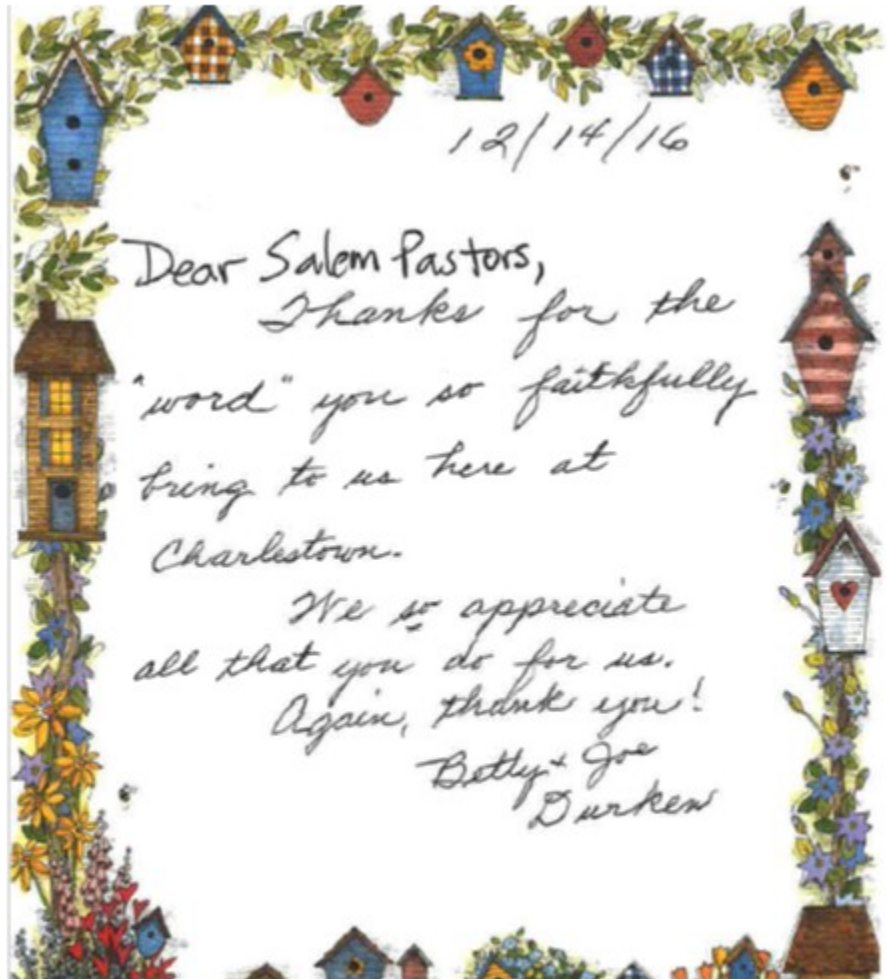 12/14/16
Dear Salem Pastors,
Thanks for the
"word" you so faithfully
bring to us here at
Charlestown.
We so appreciate
all that you do for us.
Again, thank you!
Betty + Joe
Durken